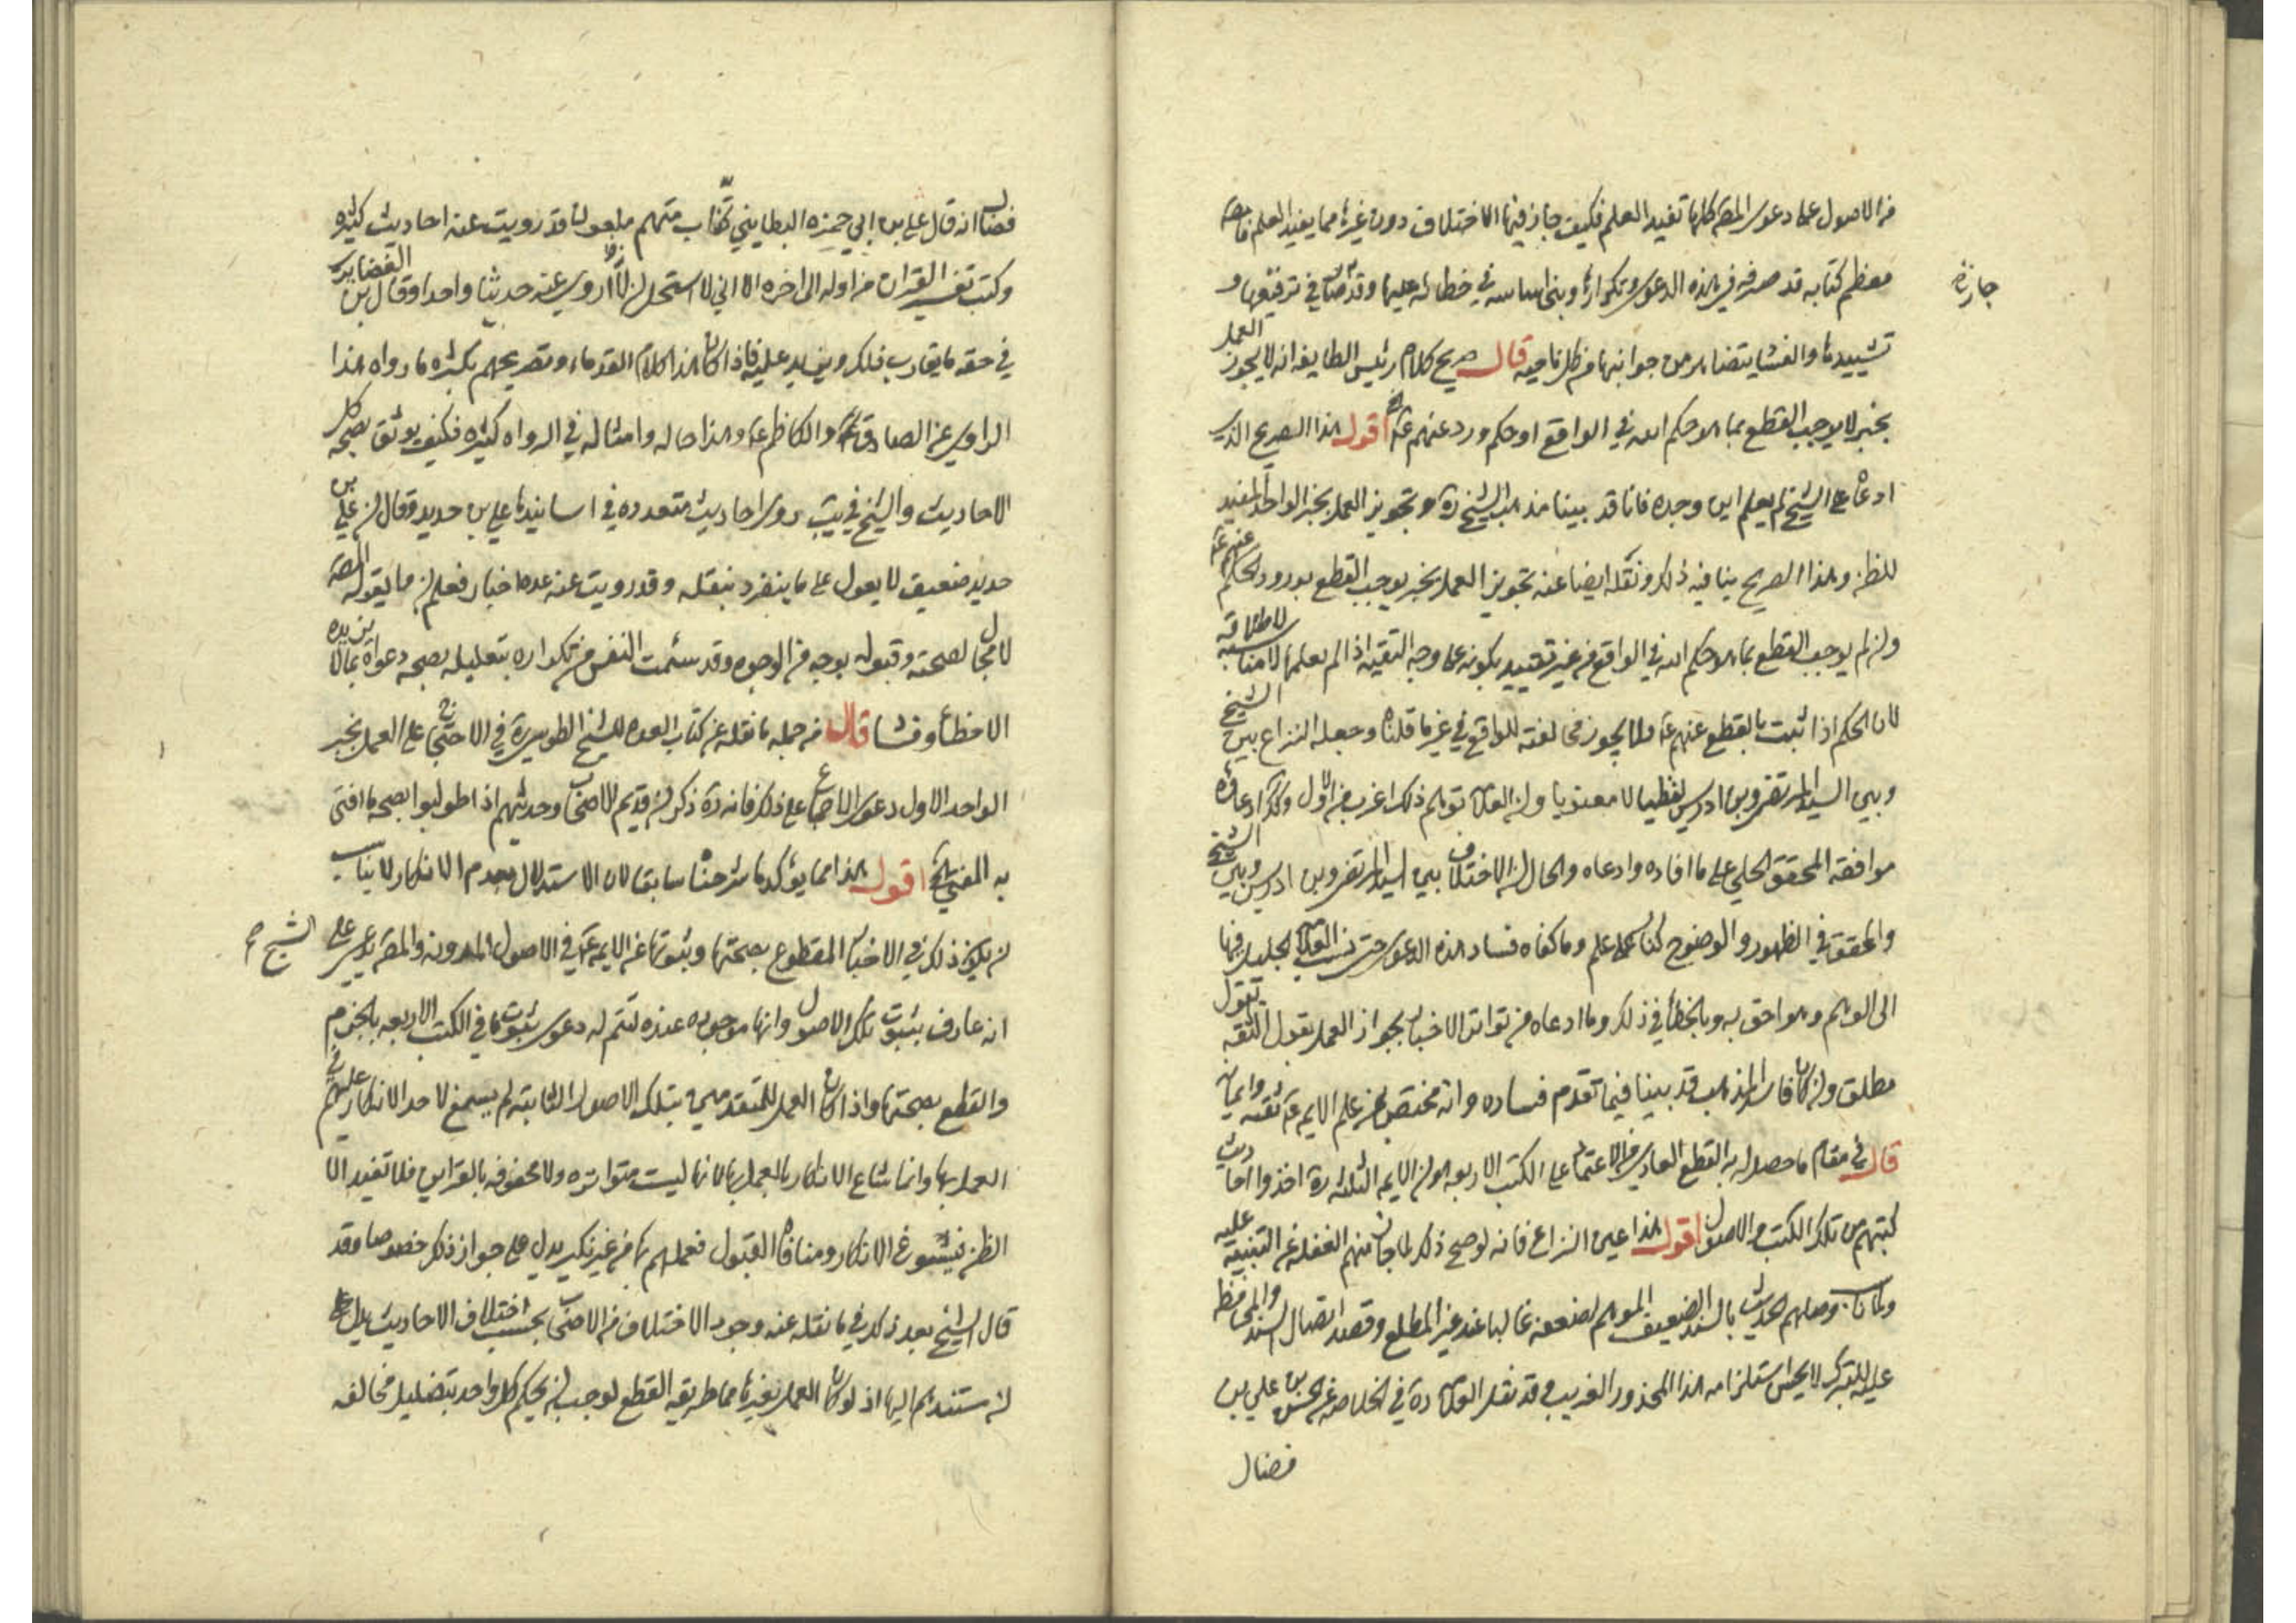 من الاصول على دعوى المصه كلها تفيد العلم فكيف جاز فيها الاختلاف دون غيرها مما يفيد العلم
معظم كتابه قد صرفه في هذه الدعوى وتكرارها وبنى اساسه في خطائه عليها وقد في ترقيقها و
جازة
تشييدها والغشا يتضا من جوانبها من كل ناحيه قال صريح كلام رئيس الطايفه انه لا يجوز العمل
بخبر لا يوجب القطع بما هو حكم الله في الواقع او حكم ورد عنهم عة اقول هذا الصريح الذي
ادعاه على الشيخ لم يعلم اين وجده فانا قد بينا مذهب الشيخ ره وتجويز العمل بخبر الواحد المفيد
للظن وهذا الصريح ينافيه ذلك ونقله ايضا عنه تجويز العمل بخبر يوجب القطع بورود الحكم عنهم عة
وان لم يوجب القطع بما هو حكم الله في الواقع من غير تقييد بكونه على وجه التقيه اذا لم يعلمها لا مناسبه لاطلاقه
لان الحكم اذا ثبت بالقطع عنهم عة ولا يجوز مخالفته للواقع في غير ما قلناه وجعله النزاع بين الشيخ
وبين السيد المرتضى وبن ادريس لفظيا لا معنويا وان العلامة توهم ذلك اغرب من الاول وكذا ادعاؤه
موافقه المحقق الحلي على ما افاده وادعاه والحال ان الاختلاف بين السيد المرتضى وبن ادريس وبين الشيخ
والمحقق في الظهور والوضوح كنار على علم وما كفاه فساد هذه الدعوى حتى نسب العلامة الجليل فيها
الى الوهم وهو احق به وبالخطا في ذلك وما ادعاه من تواتر الاخبار بجواز العمل بقول الثقه
مطلق وان كان فاسد المذهب قد بينا فيما تقدم فساده وانه مختص بمن علم الايمه عة ثقته وايمانه
قال في مقام ما حصل له به القطع العادي من الاعتماد على الكتب الاربعه هو ان الايمه الثلثه ره اخذوا احاديث
كتبهم من تلك الكتب والاصول اقول هذا عين النزاع فانه لو صح ذلك لما جاز منهم الغفله عن التنبيه عليه
ولما كان وصلهم الحديث بالسند الضعيف الموهم لضعفه غالبا عند غير المطلع وقصد اتصال السند والمحافظه
عليه للتبرك لا يحسن استلزامه هذا المحذور الغريب وقد نقل العلامة ره في الخلاصه عن الحسن بن علي بن
فضال
فضال انه قال علي بن ابي حمزه البطايني كذاب متهم ملعون قد رويت عنه احاديث كثيره
وكتبت تفسير القران من اوله الى اخره الا اني لا استحل ان اروي عنه حديثا واحدا وقال بن الغضايري
في حقه ما يقارب ذلك ويزيد عليه فاذا كان هذا كلام القدماء وتصريحهم بكثره ما رواه هذا
الراوي عن الصادق عة والكاظم عة وهذا حاله وامثاله في الرواه كثيره فكيف يوثق بصحه كل
الاحاديث والشيخ في يب روى احاديث متعدده في اسانيدها علي بن حديد وقال ان علي بن
حديد ضعيف لا يعول على ما ينفرد بنقله وقد رويت عنه عده اخبار فعلم ان ما يقوله المصه
لا مجال لصحته وقبوله بوجه من الوجوه وقد سئمت النفس من تكراره بتعليله بصحه دعواه بما لا يزيده
الا خطأ وفشا قال من جمله ما نقله عن كتاب العده للشيخ الطوسي ره في الاحتجاج على العمل بخبر
الواحد الاول دعوى الاجماع على ذلك فانه ره ذكر ان قديم الاصحاب وحديثهم اذا طولبوا بصحه ما افتى
به المفتي اقول هذا مما يؤكد ما شرحناه سابقا لان الاستدلال بعدم الانكار لا يناسب
ان يكون ذلك في الاخبار المقطوع بصحتها وثبوتها عن الايمه عة في الاصول المدونه والمصه يدعي على الشيخ
انه عارف بثبوت تلك الاصول وانها موجوده عنده لتتم له دعوى ثبوت ما في الكتب الاربعه بالجزم
والقطع بصحتها واذا كان العمل للمتقدمين بتلك الاصول الثابته لم يسغ لاحد الانكار عليهم في
العمل بها وانما شاع الانكار بالعمل بها لانها ليست متواتره ولا محفوفه بالقراين فلا تفيد الا
الظن فيسوغ الانكار ومنافاه القبول فعملهم بها من غير نكير يدل على جواز ذلك خصوصا وقد
قال الشيخ بعد ذلك في ما نقله عنه وجود الاختلاف من الاصحاب بحسب اختلاف الاحاديث يدل على
ان مستندهم اليها اذ لو كان العمل بغيرها مما طريقه القطع لوجب ان يحكم كل واحد بتضليل مخالفه